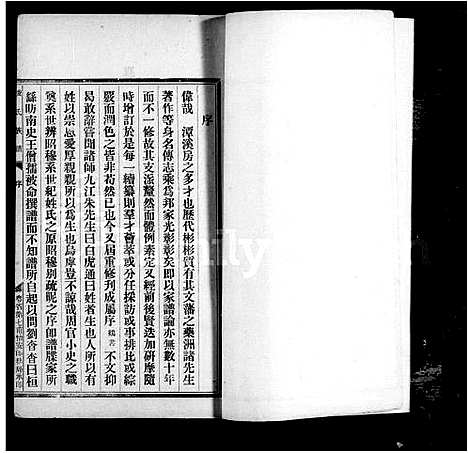 序
偉哉 潭溪房之多才也歷代彬彬質有其文藩之藥洲諸先生
著作等身名傳志乘爲邦家光彰彰矣即以家譜論亦無數十年
而不一修故其支派釐然而體例素定又經前後賢迭加研摩隨
時增訂於是每一續纂則羣才薈萃或分任採訪或事排比或綜
覈而潤色之皆非苟然已也今又屆重修刋成屬序 不文抑
曷敢辭嘗聞諸師九江朱先生曰白虎通曰姓者生也人所以有
姓以崇恩愛厚親親所以爲生也烏虖豈不諒哉周官小史之職
奠系世辨昭穆系世紀姓氏之原昭穆別疏昵之序即譜牒家所
繇昉南史王僧孺被命撰譜而不知譜所自起以問劉杳杳曰桓
氏族譜 序